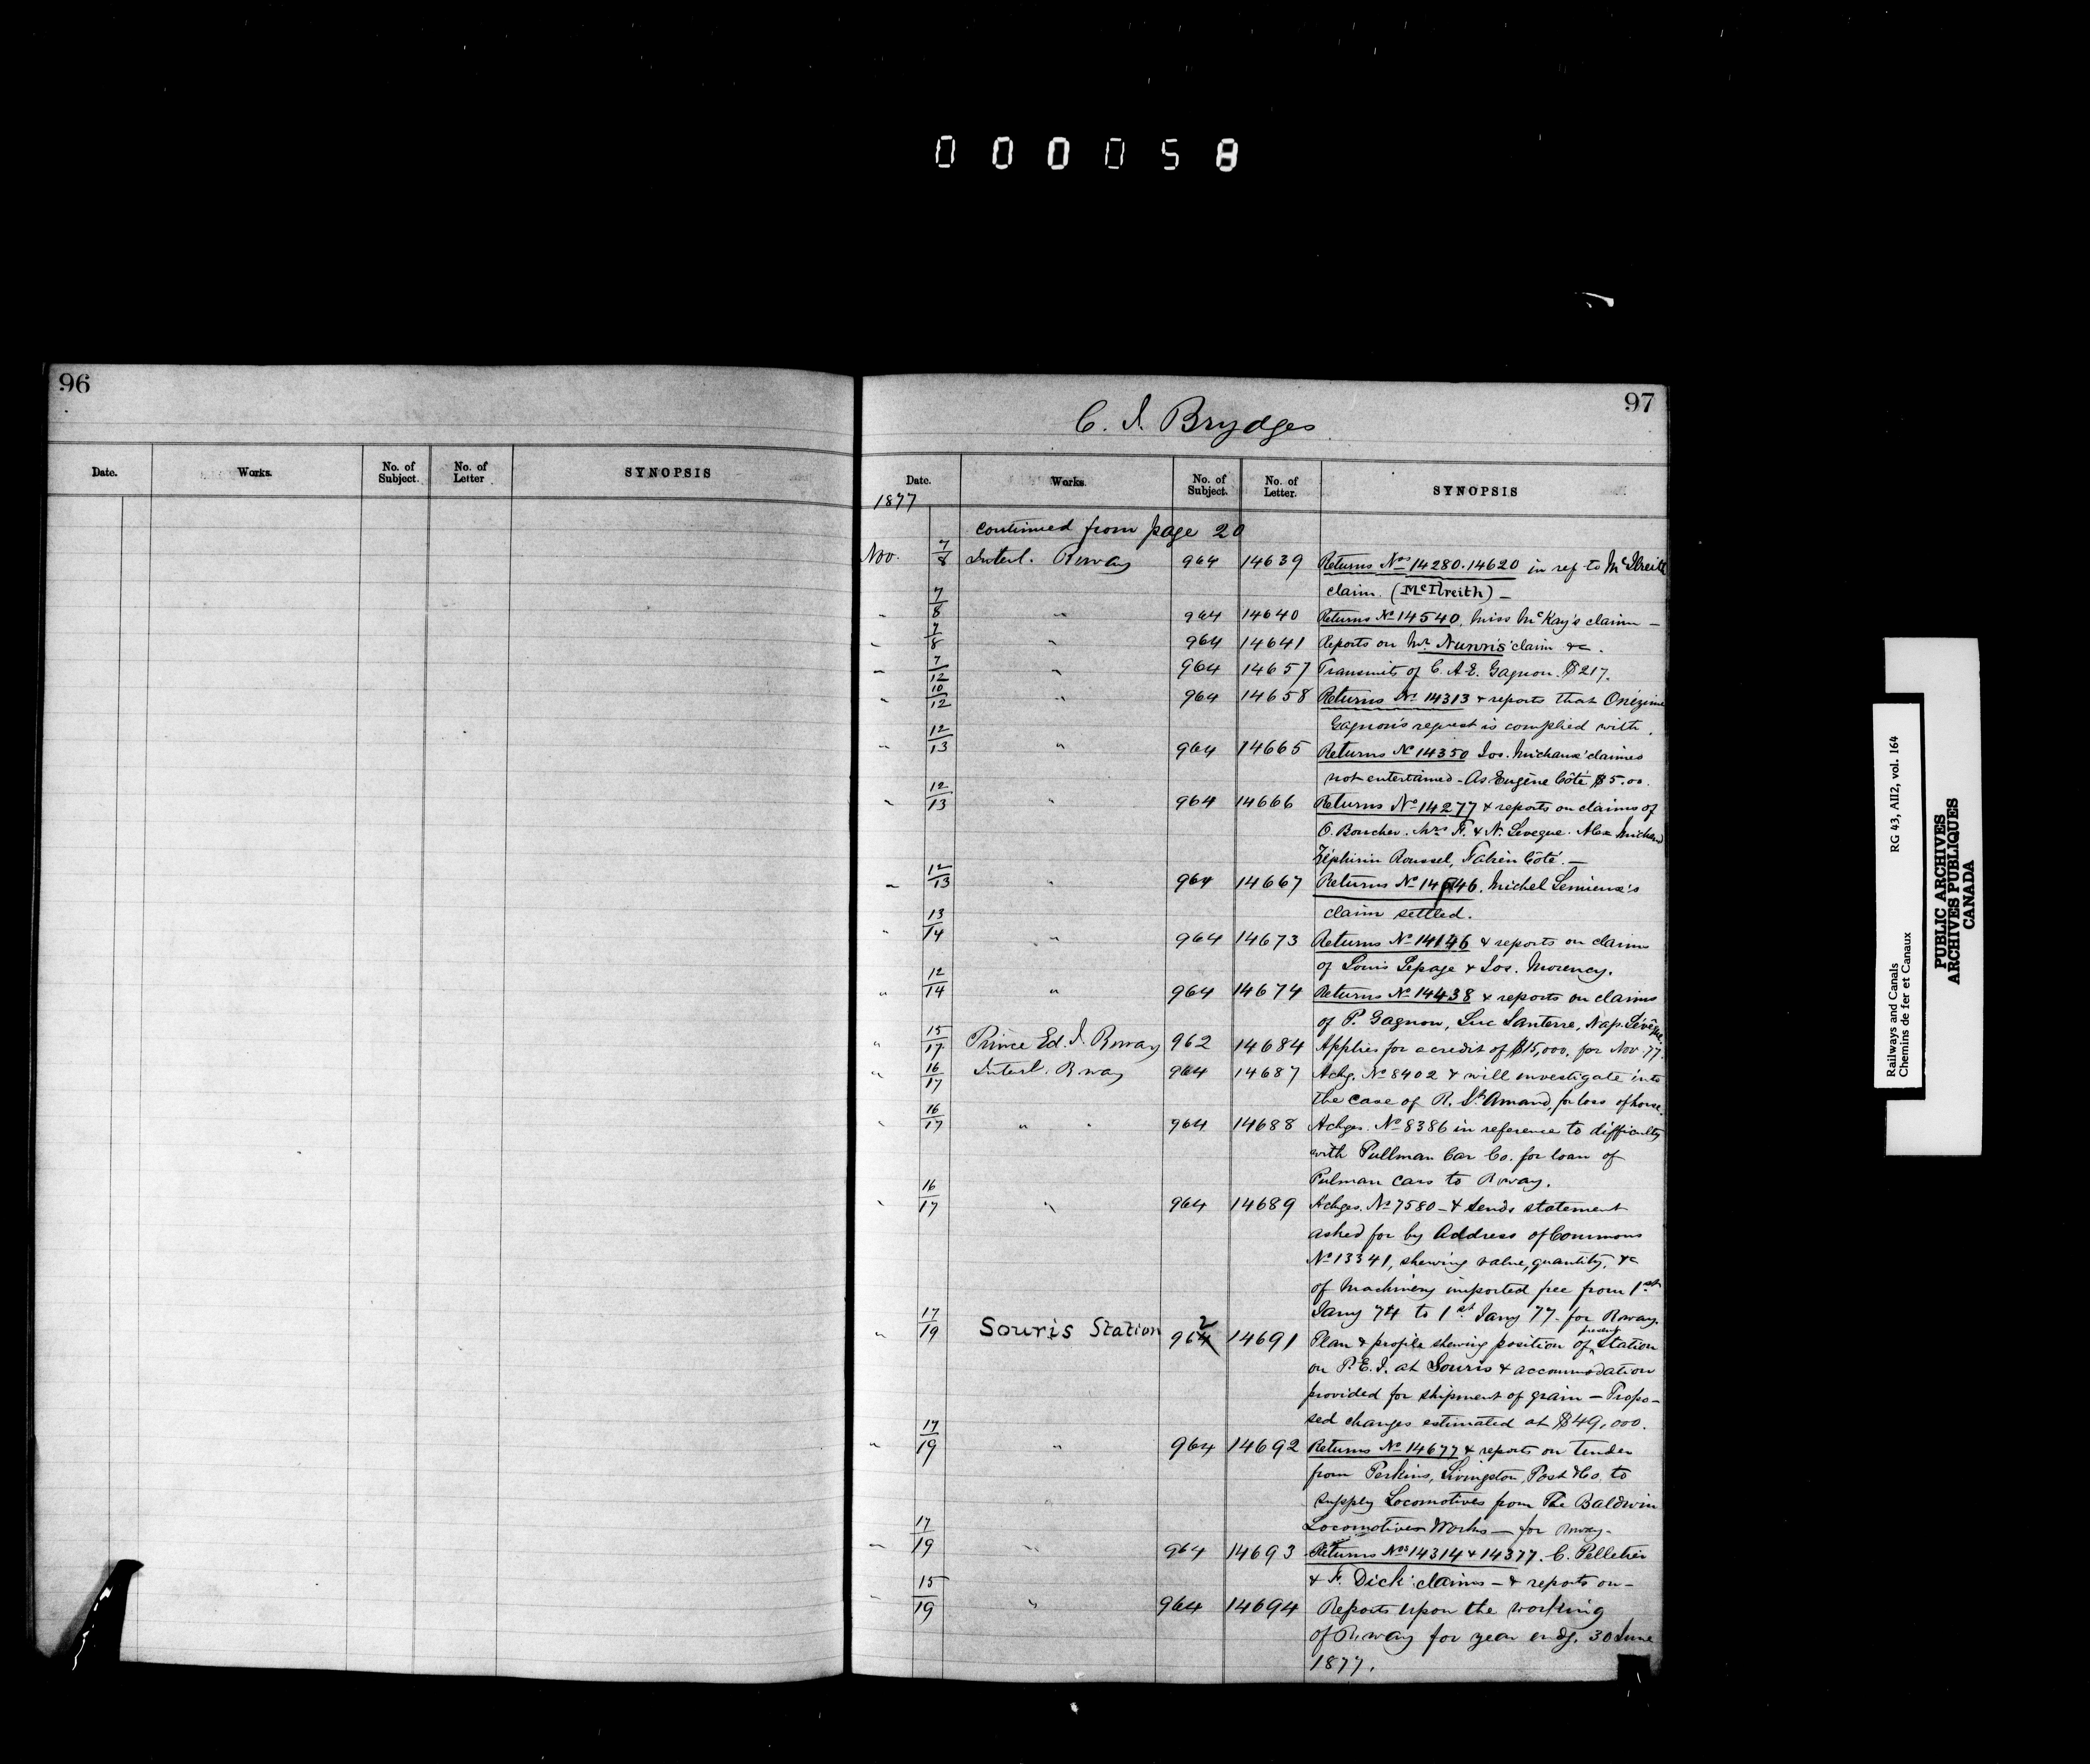 000058
96
Date. Works. No. of Subject. No. of Letter. SYNOPSIS
97
C. J. Brydges
Date. Works. No. of Subject. No. of Letter. SYNOPSIS
1877
continued from page 20
Nov. 7/8 Intercl. Rway 964 14639 Returns Nos 14280.14620 in ref to McIlreith
claim. (McIlreith) —
" 7/8 " 964 14640 Returns No 14540. Miss McKay's claim —
" 7/8 " 964 14641 Reports on Mr. Nunn's claim &c.
" 7/12 " 964 14657 Transmits of C. A. E. Gagnon. $217.
" 10/12 " 964 14658 Returns No 14313 & reports that Onézime
Gagnon's request is complied with.
" 12/13 " 964 14665 Returns No 14350 Jos. Michaux' claims
not entertained - As Eugène Côté $5.00.
" 12/13 " 964 14666 Returns No 14277 & reports on claims of
O. Boucher. Mrs F. & N. Leveque. Alex Michaud
Zéphirin Roussel, Fabien Côté. —
" 12/13 " 964 14667 Returns No Michel Lemieux's
claim settled.
" 13/14 " 964 14673 Returns No 14146 & reports on claims
of Louis Lepage & Jos. Morency.
" 12/14 " 964 14674 Returns No 14438 & reports on claims
of P. Gagnon, Luc Santerre, Nap. Lévêque
" 15/17 Prince Ed. I. Rway 962 14684 Applies for a credit of $15,000. for Nov. 77.
" 16/17 Intercl. Rway 964 14687 Ackg. No 8402 & will investigate into
the case of R. St Amand, for loss of horse.
" 16/17 " " 964 14688 Ackges. No 8386 in reference to difficulty
with Pullman Car Co. for loan of
Pulman cars to Rway.
" 16/17 " 964 14689 Ackges. No 7580 - & sends statement
asked for by Address of Commons
No 13341, shewing value, quantity, &c
of Machinery imported free from 1st
Jany 74 to 1st Jany 77. for Rway.
" 17/19 Souris Station 962 14691 Plan & profile shewing position of present Station
on P.E.I. at Souris & accommodation
provided for shipment of grain — Propo-
sed changes estimated at $49,000.
" 17/19 " 964 14692 Returns No 14677 & reports on tender
from Perkins, Livingston, Post & Co. to
supply Locomotives from The Baldwin
Locomotives Works — for Rway.
" 17/19 " 964 14693 Returns Nos 14314 & 14377. C. Pelletier
& F. Dick claims — & reports on —
" 15/19 " 964 14694 Reports upon the working
of Rway for year endg. 30 June
1877.
Railways and Canals RG 43, AII2, vol. 164
Chemins de fer et Canaux
PUBLIC ARCHIVES
ARCHIVES PUBLIQUES
CANADA